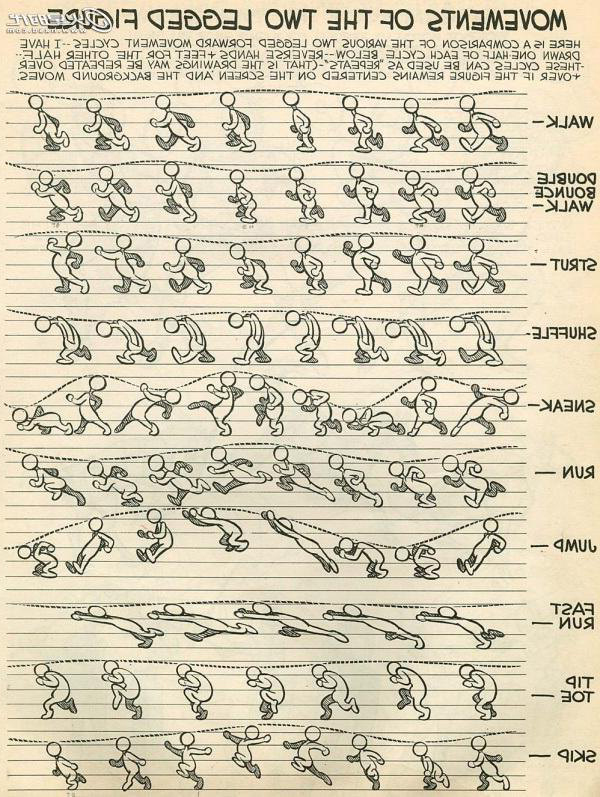 MOVEMENTS OF THE TWO LEGGED FIGURE
HERE IS A COMPARISON OF THE VARIOUS TWO LEGGED FORWARD MOVEMENT CYCLES--I HAVE
DRAWN ONE-HALF OF EACH CYCLE BELOW--REVERSE HANDS + FEET FOR THE OTHER HALF--
-THESE CYCLES CAN BE USED AS "REPEATS"-(THAT IS THE DRAWINGS MAY BE REPEATED OVER
+OVER IF THE FIGURE REMAINS CENTERED ON THE SCREEN AND THE BACKGROUND MOVES.
WALK-
DOUBLE
BOUNCE
WALK-
STRUT-
SHUFFLE-
SNEAK-
RUN-
JUMP-
FAST
RUN-
TIP
TOE-
SKIP-